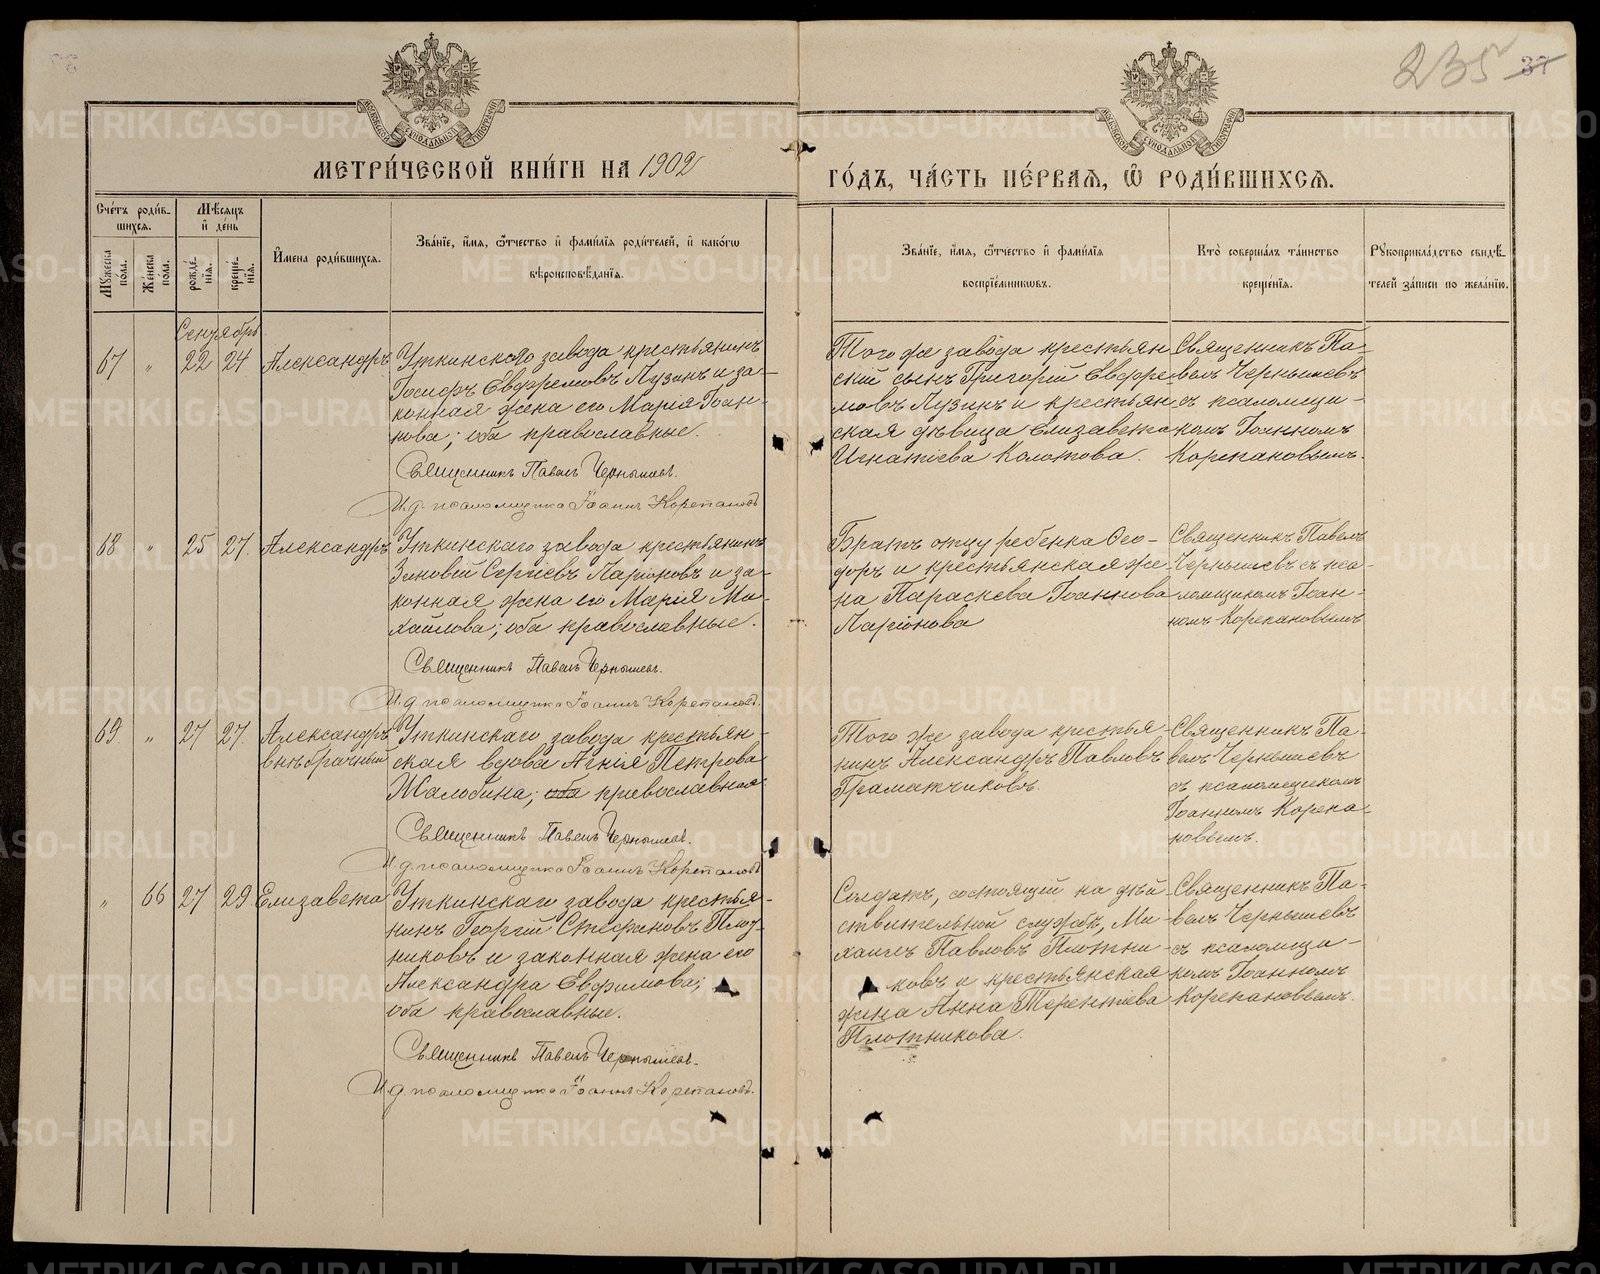 235 37
МЕТРИ́ЧЕСКОЙ КНИ́ГИ НА 1902 ГО́ДЪ, ЧА́СТЬ ПЕ́РВАЯ, Ѿ РОДИ́ВШИХСЯ.
Сче́тъ роди́в-
шихся.
Мꙋ́жеска
пола.
Же́нска
пола.
Мѣ́сяцъ
и҆ де́нь
рожде́-
нїя.
креще́-
нїя.
И҆мена роди́вшихся.
Зва́нїе, и҆́мя, ѻ҆́тчество и҆ фами́лїя роди́телей, и҆ како́гѡ
вѣроисповѣ́данїя.
Зва́нїе, и҆́мя, ѻ҆́тчество и҆ фами́лїя
воспрїе́мникѡвъ.
Кто̀ соверша́лъ та́инство
креще́нїя.
Рꙋкоприкла́дство свидѣ́-
телей за́писи по жела́нїю.
Сентябрь
67 „ 22 24 Александръ
Уткинскаго завода крестьянинъ
Іосифъ Евфремовъ Пузинъ и за-
конная жена его Марія Іоан-
нова; оба православные.
Священникъ Павелъ Чернышевъ.
И.д. псаломщика Іоаннъ Корепановъ
Того же завода крестьян-
скій сынъ Григорій Евфре-
мовъ Пузинъ и крестьян-
ская дѣвица Елизавета
Игнатіева Колотова.
Священникъ Па-
велъ Чернышевъ
съ псаломщи-
комъ Іоанномъ
Корепановымъ.
68 „ 25 27. Александръ
Уткинскаго завода крестьянинъ
Зиновій Сергіевъ Ларіоновъ и за-
конная жена его Марія Ми-
хайлова; оба православные.
Священникъ Павелъ Чернышевъ.
И.д. псаломщика Іоаннъ Корепановъ.
Братъ отцу ребенка Ѳео-
доръ и крестьянская же-
на Параскева Іоаннова
Ларіонова
Священникъ Павелъ
Чернышевъ съ пса-
ломщикомъ Іоан-
номъ Корепановымъ
69. „ 27 27. Александръ
внѣбрачный
Уткинскаго завода крестьян-
ская вдова Агнія Петрова
Жалобина; оба православная.
Священникъ Павелъ Чернышевъ.
И.д. псаломщика Іоаннъ Корепановъ
Того же завода крестья-
нинъ Александръ Павловъ
Граматчиковъ.
Священникъ Па-
велъ Чернышевъ
съ псаломщикомъ
Іоанномъ Корепа-
новымъ.
„ 66 27 29 Елизавета
Уткинскаго завода крестья-
нинъ Георгій Стефановъ Плот-
никовъ и законная жена его
Александра Евфимова;
оба православные.
Священникъ Павелъ Чернышевъ.
И.д. псаломщика Іоаннъ Корепановъ.
Солдатъ, состоящій на дѣй-
ствительной службѣ, Ми-
хаилъ Павловъ Плотни-
ковъ и крестьянская
жена Анна Терентіева
Плотникова.
Священникъ Па-
велъ Чернышевъ
съ псаломщи-
комъ Іоанномъ
Корепановымъ.
METRIKI.GASO-URAL.RU